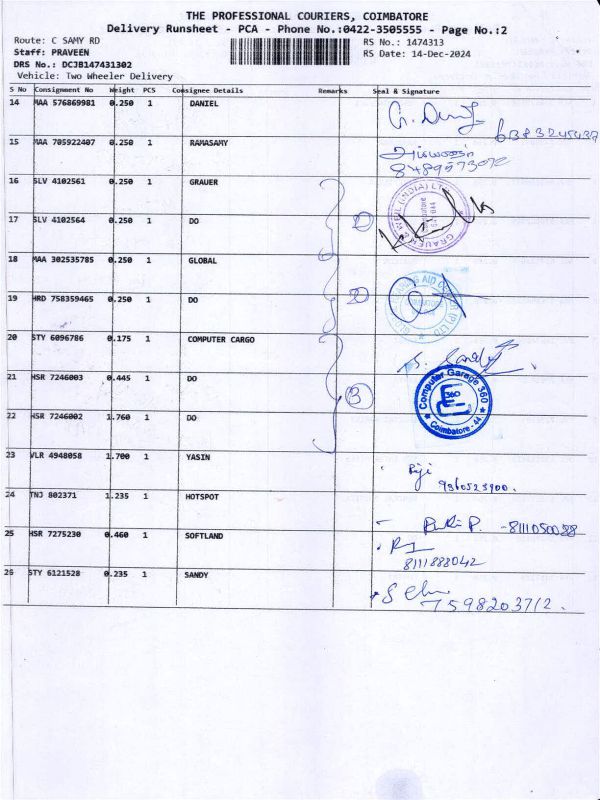 THE PROFESSIONAL COURIERS, COIMBATORE
Delivery Runsheet - PCA - Phone No.:0422-3505555 - Page No.:2
Route: C SAMY RD RS No.: 1474313
Staff: PRAVEEN RS Date: 14-Dec-2024
DRS No.: DCJB147431302
Vehicle: Two Wheeler Delivery
S No Consignment No Weight PCS Consignee Details Remarks Seal & Signature
14 MAA 576869981 0.250 1 DANIEL
15 MAA 705922407 0.250 1 RAMASAMY
16 SLV 4102561 0.250 1 GRAUER
17 SLV 4102564 0.250 1 DO
18 MAA 302535785 0.250 1 GLOBAL
19 HRD 758359465 0.250 1 DO 2
20 STY 6096786 0.175 1 COMPUTER CARGO
21 HSR 7246003 0.445 1 DO 3
Computer Garage 360
360
Coimbatore - 44
22 HSR 7246002 1.760 1 DO
23 VLR 4948058 1.700 1 YASIN
9360523900.
24 TNJ 802371 1.235 1 HOTSPOT
25 HSR 7275230 0.460 1 SOFTLAND
8111888042
26 STY 6121528 0.235 1 SANDY
7598203712.